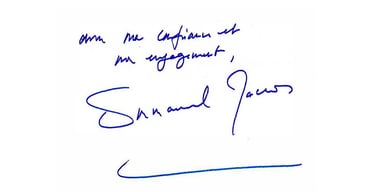 avec ma confiance et
mon engagement,
Emmanuel Macron